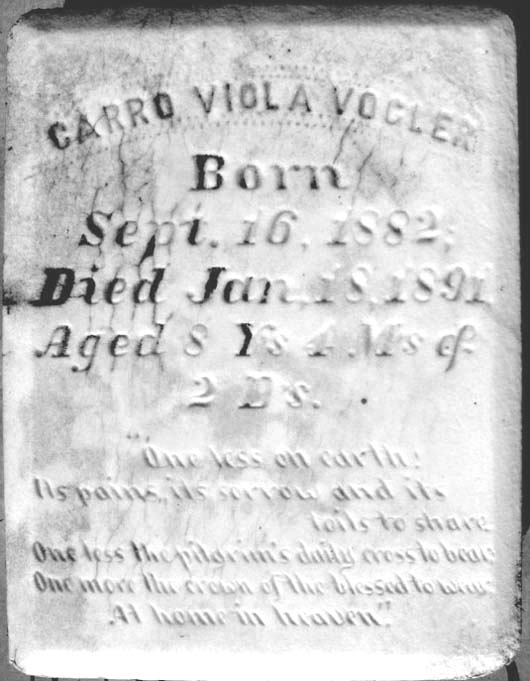 CARRO VIOLA VOGLER
Born
Sept. 16, 1882;
Died Jan. 18, 1891,
Aged 8 Ys 4 Ms &
2 Ds.
"One less on earth!
Its pains, its sorrow and its
toils to share
One less the pilgrim's daily cross to bear;
One more the crown of the blessed to wear
At home in heaven."